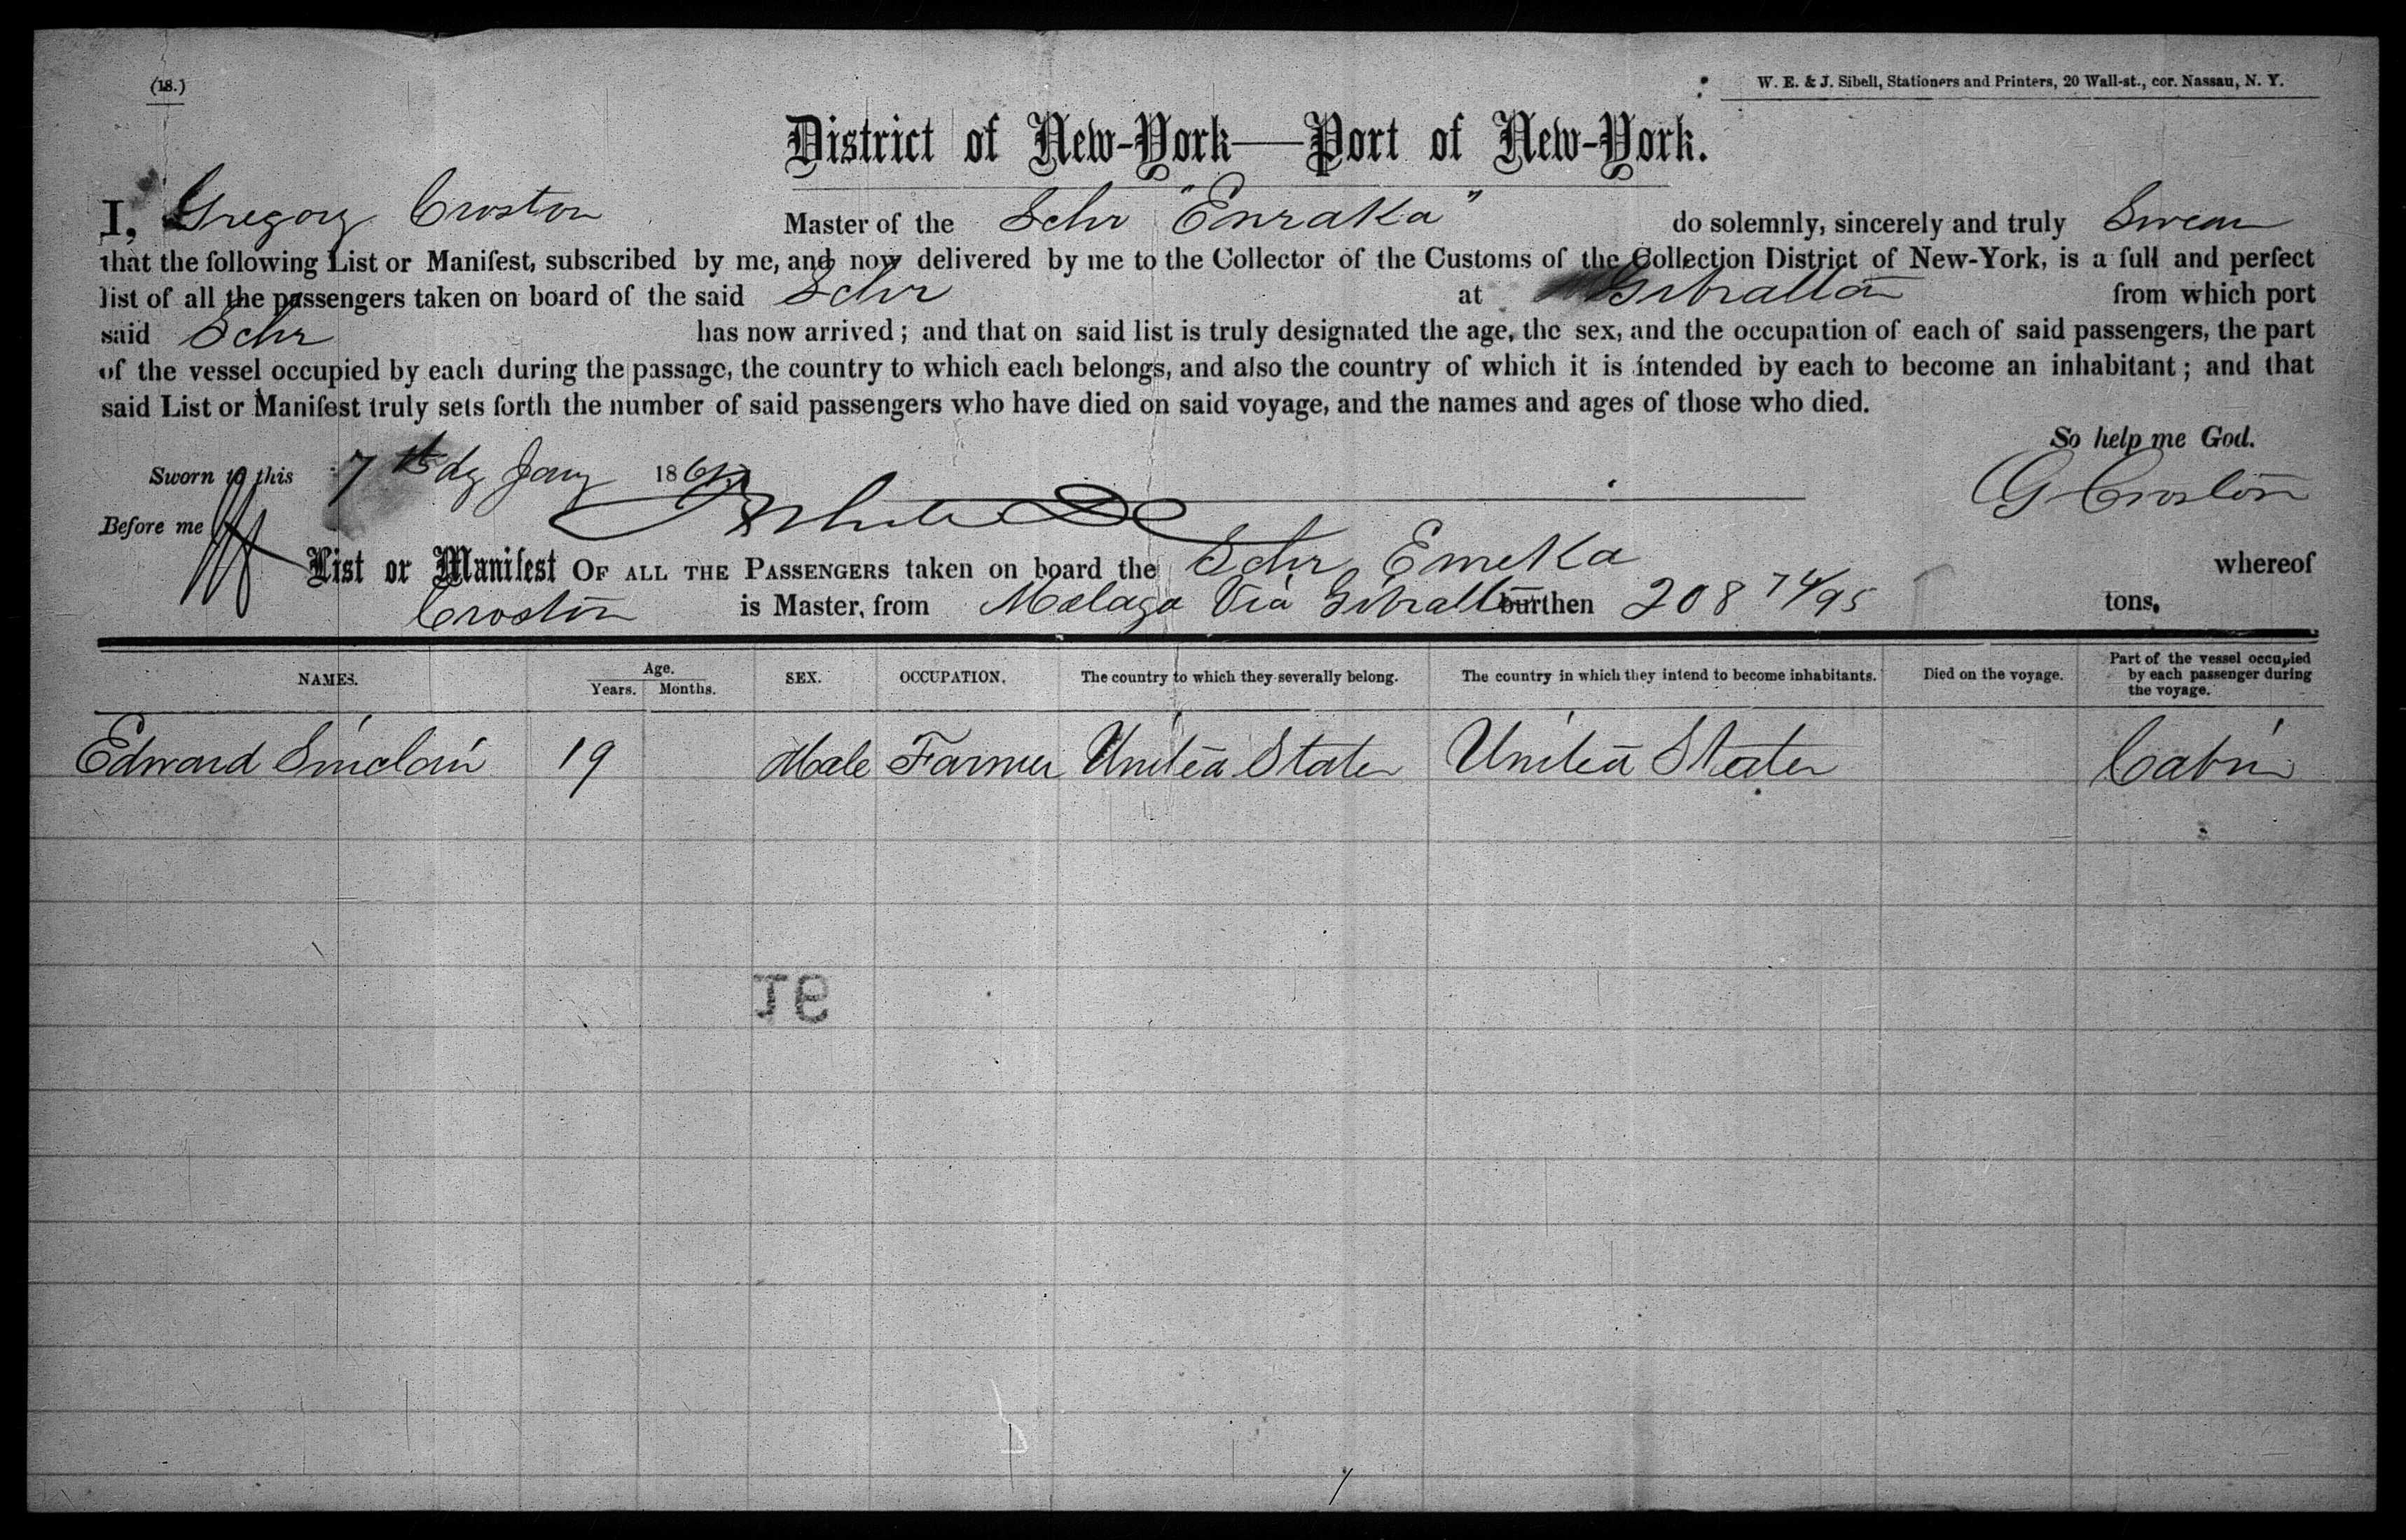 (18.)
W. E. & J. Sibell, Stationers and Printers, 20 Wall-st., cor. Nassau, N. Y.
District of New-York—Port of New-York.
I, Gregory Croston Master of the Schr "Enraka" do solemnly, sincerely and truly Swear
that the following List or Manifest, subscribed by me, and now delivered by me to the Collector of the Customs of the Collection District of New-York, is a full and perfect
list of all the passengers taken on board of the said Schr at Gibraltar from which port
said Schr has now arrived; and that on said list is truly designated the age, the sex, and the occupation of each of said passengers, the part
of the vessel occupied by each during the passage, the country to which each belongs, and also the country of which it is intended by each to become an inhabitant; and that
said List or Manifest truly sets forth the number of said passengers who have died on said voyage, and the names and ages of those who died.
So help me God.
Sworn to this 7th dy Jany 186
G Croston
Before me
List or Manifest OF ALL THE PASSENGERS taken on board the Schr whereof
Croston is Master, from Malaga Via Gibraltar burthen 208 74/95 tons.
NAMES. Age. Years. Months. SEX. OCCUPATION. The country to which they severally belong. The country in which they intend to become inhabitants. Died on the voyage. Part of the vessel occupied by each passenger during the voyage.
Edward Sinclair 19 Male Farmer United States United States Cabin
91